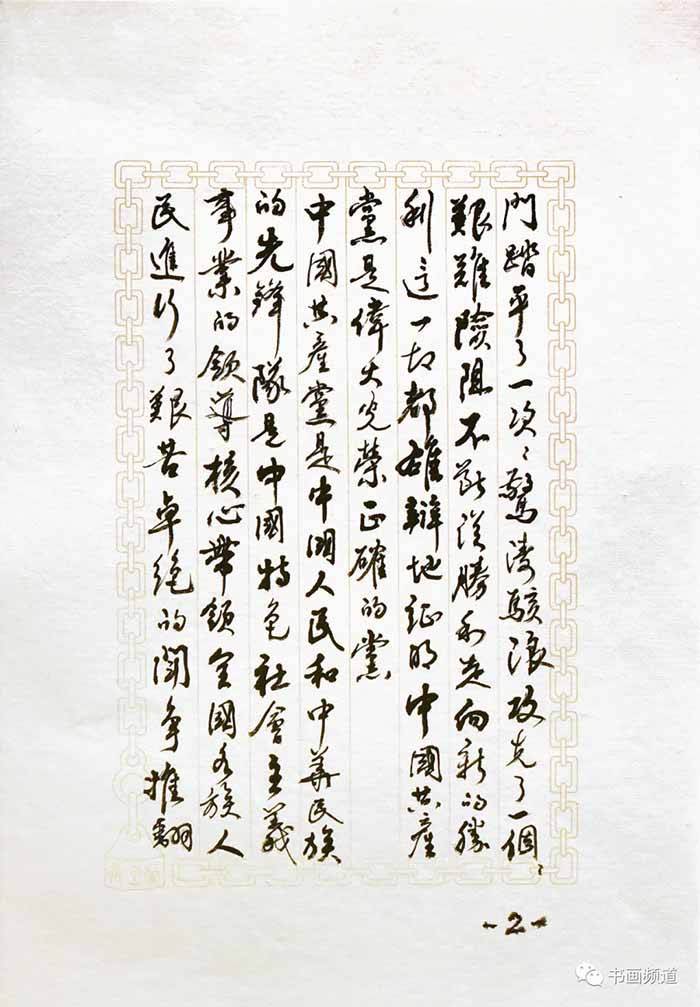 門踏平了一次々驚濤駭浪攻克了一個々
艱難險阻不斷從勝利走向新的勝
利這一切都雄辯地証明中國共產
黨是偉大光榮正確的黨
中國共產黨是中國人民和中華民族
的先鋒隊是中國特色社會主義
事業的領導核心帶領全國各族人
民進行了艱苦卓絕的鬥爭推翻
-2-
书画频道